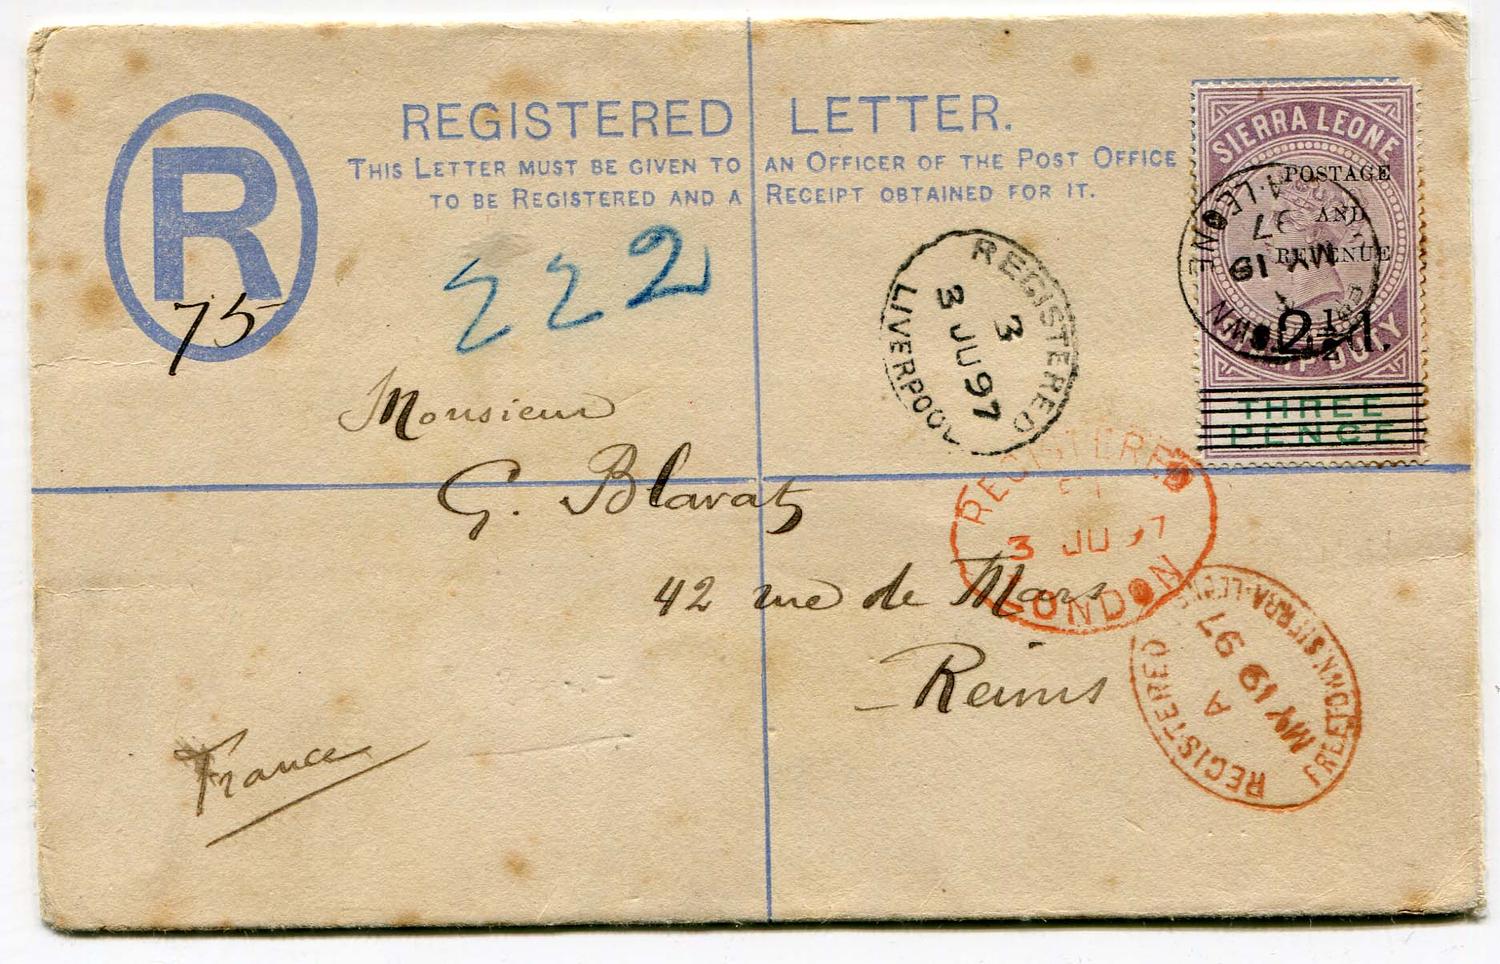 REGISTERED LETTER.
THIS LETTER MUST BE GIVEN TO AN OFFICER OF THE POST OFFICE
TO BE REGISTERED AND A RECEIPT OBTAINED FOR IT.
R
75
222
SIERRA LEONE
POSTAGE
AND
REVENUE
2½d.
DUTY
THREE
PENCE
A·LEONE
MY 19
97
REGISTERED
3
3 JU 97
LIVERPOOL
Monsieur
G. Blavat
42 rue de Mars
Reims
France
REGISTERED
3 JU 97
LONDON
REGISTERED
FREETOWN SIERRA·LEONE
A
MY 19 97